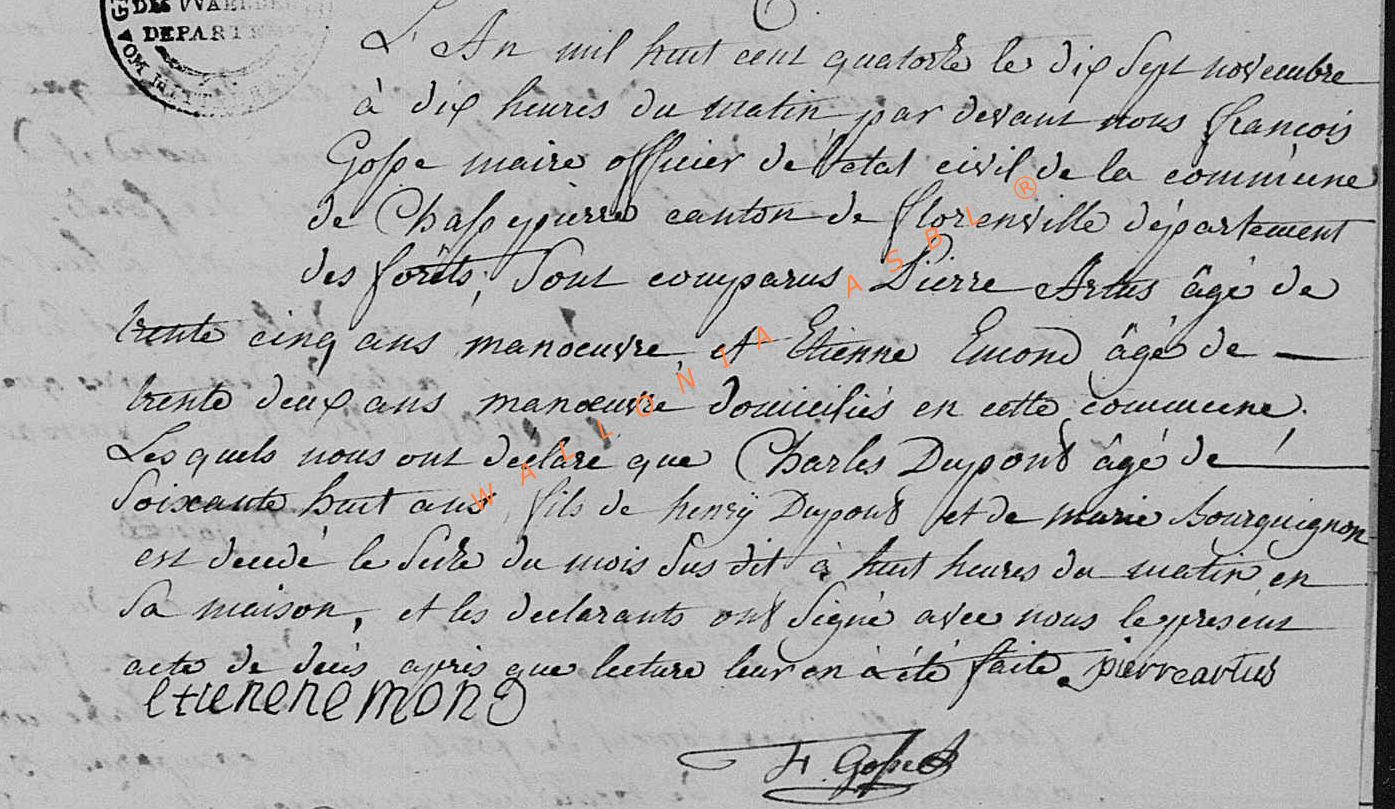 DEPARTE
L'An mil huit cent quatorze le dix sept novembre
à dix heures du matin par devant nous françois
Gosse maire officier de l'etat civil de la commune
de Chassepierre canton de florenville département
des forêts, Sont comparus Pierre Artus âgé de
trente cinq ans manoeuvre, et Etienne Emond âgé de
trente deux ans manoeuvre domiciliés en cette commune.
Lesquels nous ont declaré que Charles Dupont âgé de
Soixante huit ans, fils de henrÿ Dupont et de marie bourguignon
est decedé le Seize du mois Sus dit à huit heures du matin en
Sa maison, et les declarants ont Signé avec nous le présent
acte de decès après que lecture leur en à été faite. pierre artus
etienenemond
F. Gosse
WALLONIA ASBL ®